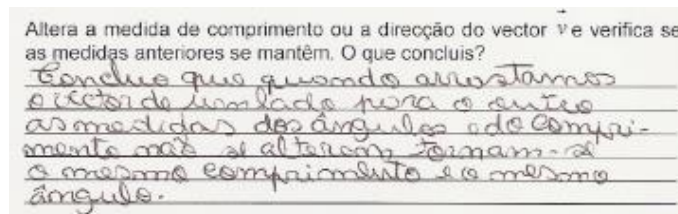 Altera a medida de comprimento ou a direcção do vector v e verifica se
as medidas anteriores se mantêm. O que concluis?
Concluo que quando arrastamos
o vector de um lado para o outro
as medidas dos ângulos e do compri-
mento não se alteram, tornam-se
o mesmo comprimento e o mesmo
ângulo.